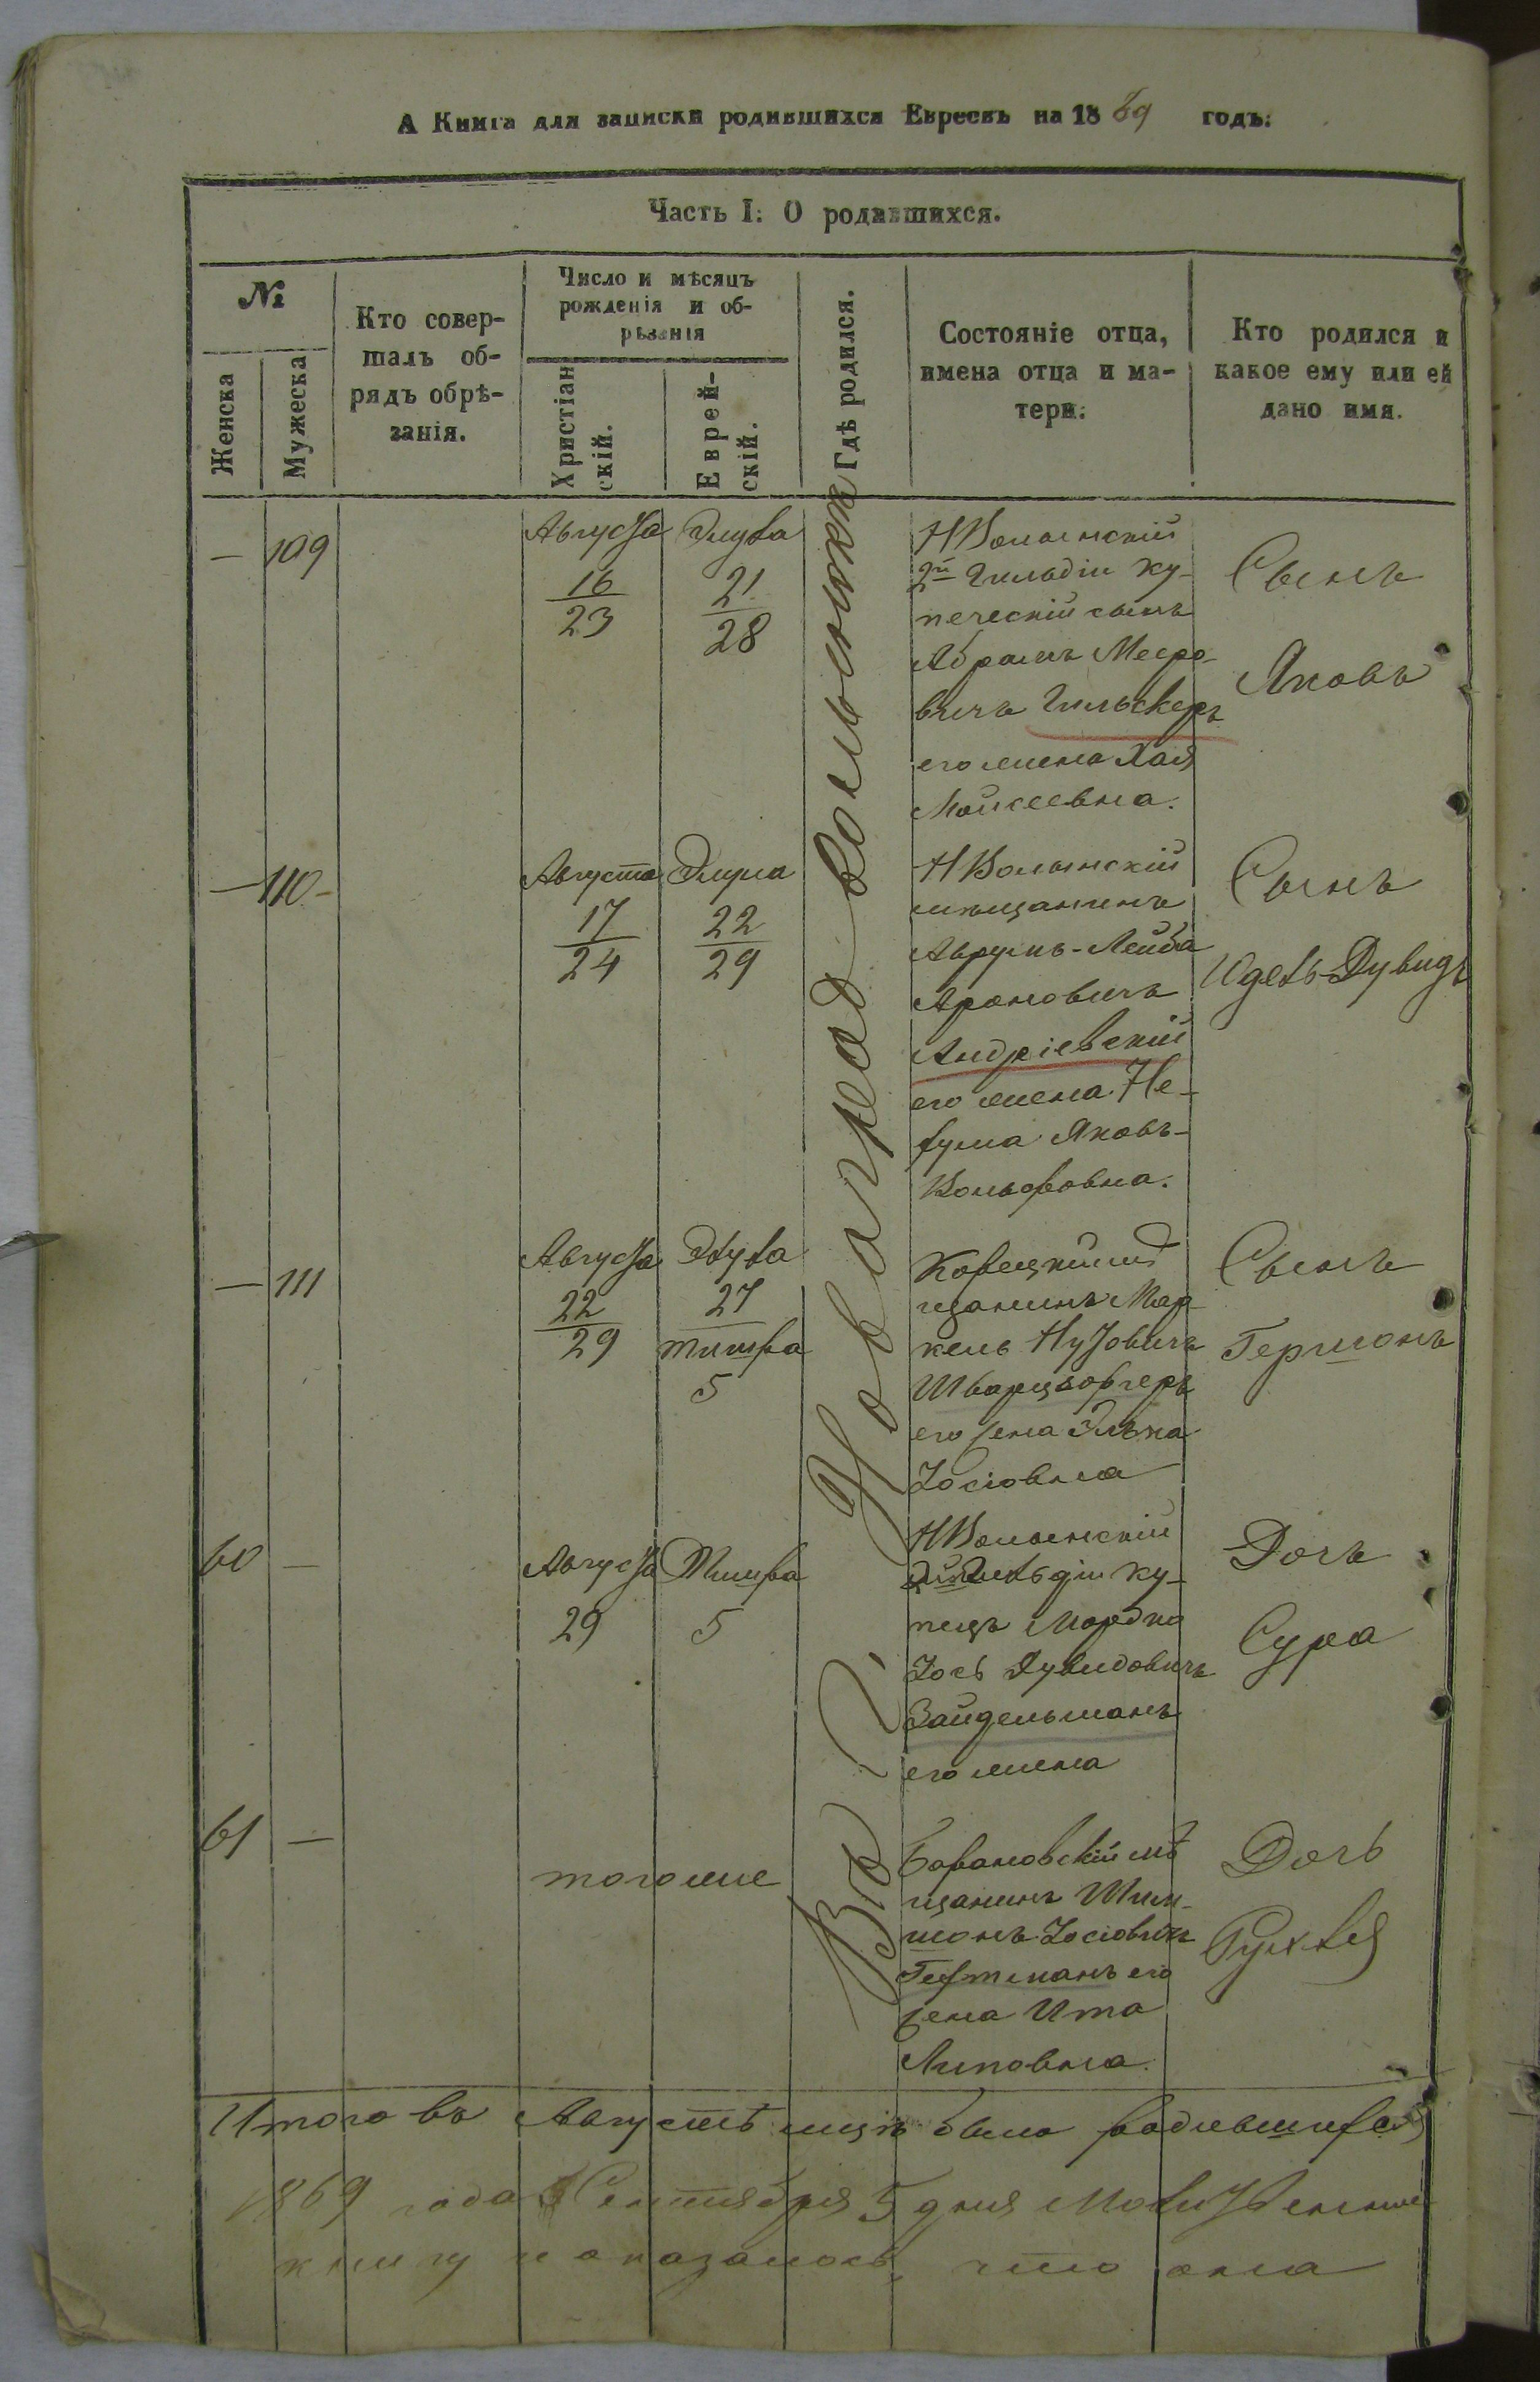 А Книга для записки родившихся Евреевъ на 1869 годъ.
Часть I: О родившихся.
№
Женска
Мужеска
Кто совер-
шалъ об-
рядъ обрѣ-
занія.
Число и мѣсяцъ
рожденія и об-
рѣзанія
Христіан
скій.
Еврей-
скій.
Гдѣ родился.
Состояніе отца,
имена отца и ма-
тери.
Кто родился и
какое ему или ей
дано имя.
Въ г. Новоград-Волынскѣ
— 109
Августа
16
23
Элула
21
28
НВолынскій
2й Гильдіи ку-
печескій сынъ
Абрамъ Мееро-
вичъ Гильскеръ
его жена Хая
Мойсеевна.
Сынъ
Яковъ
— 110 -
Августа
17
24
Элула
22
29
НВолынскій
мѣщанинъ
Аврумъ-Лейба
Ароновичъ
Андріевскій
его жена Не-
хума Яковъ-
Вольфовна.
Сынъ
Идель-Дувидъ
— 111
Августа
22
29
Элула
27
тишра
5
Корецкій мѣ
щанинъ Мар-
кель Нутовичъ
Шварцборгеръ
его жена Элька
Іосіовна
Сынъ
Гершонъ
60 —
Августа
29
Тишра
5
НВолынскій
Гильдіи ку-
пецъ Мордко
Іось Дувидовичъ
Зайдельманъ
его жена
Дочь
Сура
61 —
тогоже
Барановскій мѣ
щанинъ Шли-
монъ Іосіовичъ
Гехтманъ его
жена Ита
Липовна.
Дочь
Рухля
Итого въ Августѣ мцѣ было родившихся
1869 года Сентября 5 дня
книгу и оказалось, что она